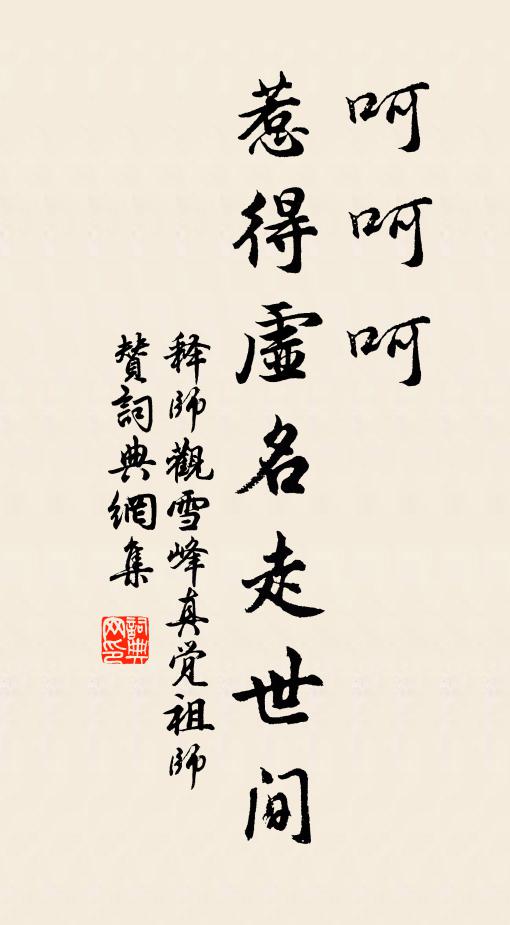 呵呵呵
惹得虛名走世间
释师觀雪峰真觉祖師
贊詞典網集
詞典
网印